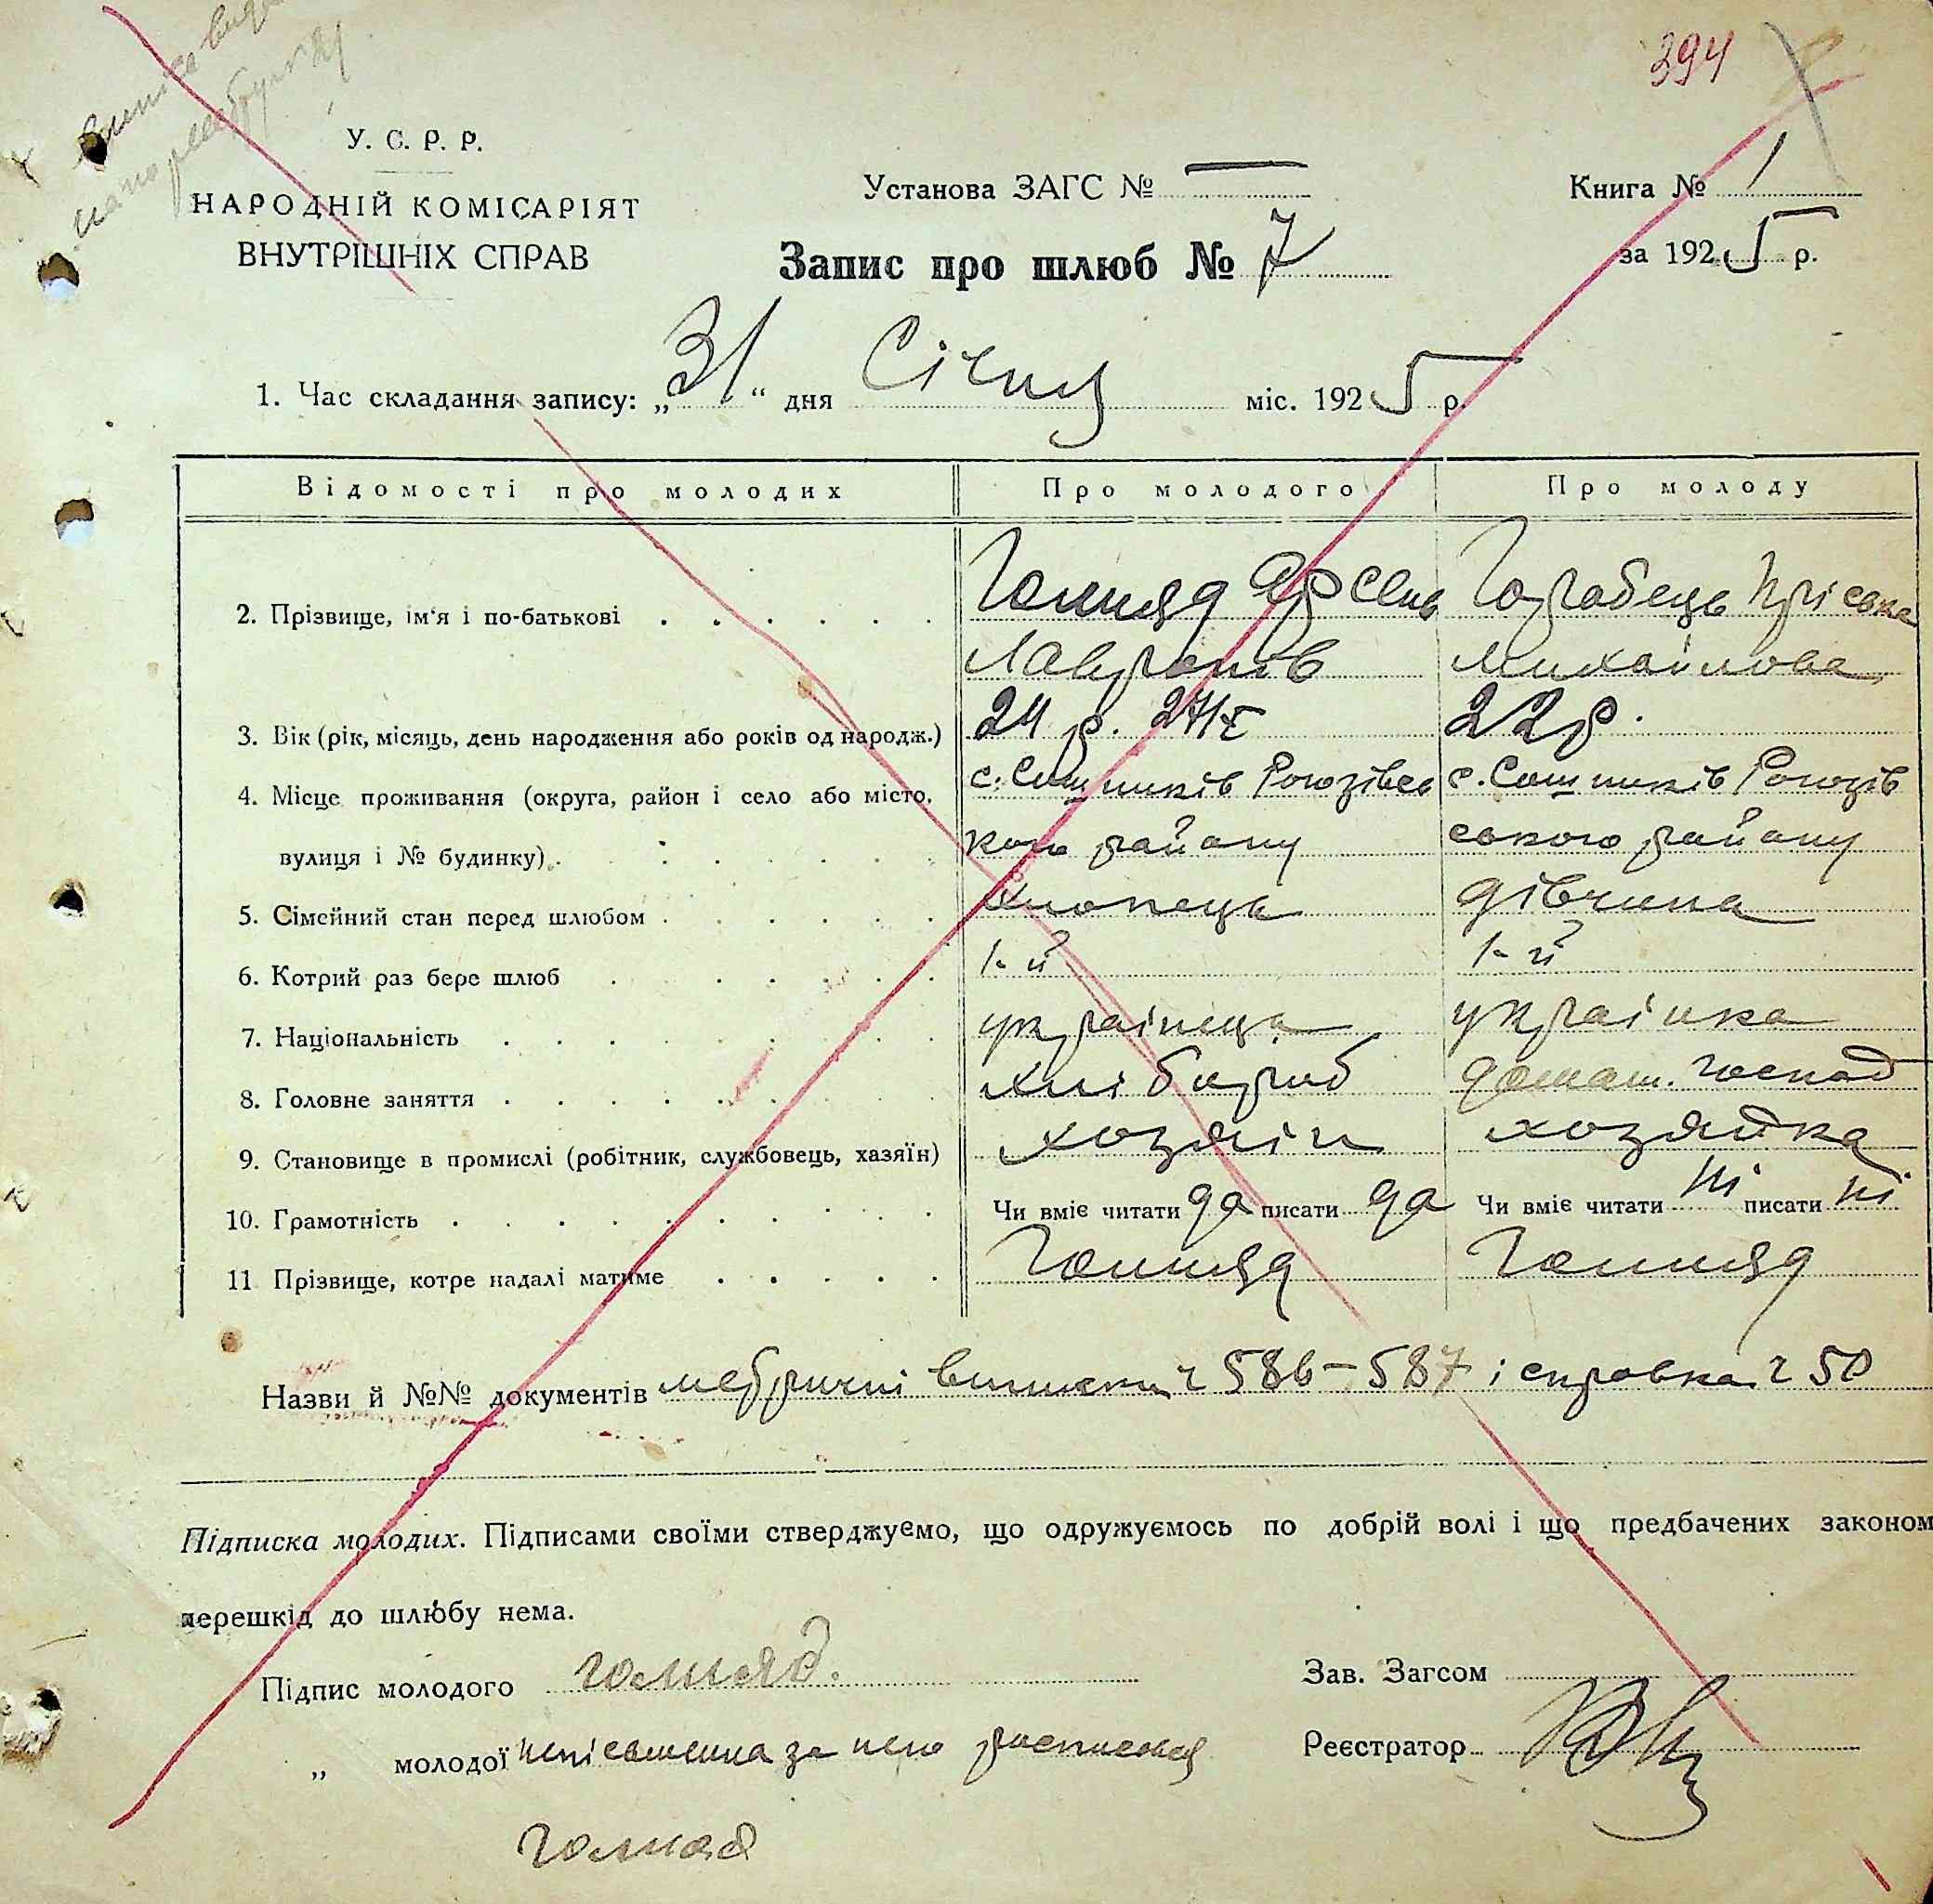 394
У. С. Р. Р.
НАРОДНІЙ КОМІСАРІЯТ
ВНУТРІШНІХ СПРАВ
Установа ЗАГС № —
Книга № 1
за 1925 р.
Запис про шлюб № 7
1. Час складання запису: „31“ дня Січня міс. 1925 р.
Відомості про молодих Про молодого Про молоду
2. Прізвище, ім‘я і по-батькові Арсень Горобець Пріська
Лавронів Михайлова
3. Вік (рік, місяць, день народження або років од народж.) 24 р. 22 р.
4. Місце проживання (округа, район і село або місто, с. Сошників Рогозівсь с. Сошників Рогозів
вулиця і № будинку) кого району ського району
5. Сімейний стан перед шлюбом хлопець дівчина
6. Котрий раз бере шлюб 1-й 1-й
7. Національність українець українка
8. Головне заняття хлібороб домаш. господ
9. Становище в промислі (робітник, службовець, хазяїн) хозяін хозяйка
10. Грамотність Чи вміє читати да писати да Чи вміє читати ні писати ні
11 Прізвище, котре надалі матиме
Назви й №№ документів метричні виписки ч 586-587 і справка ч 50
Підписка молодих. Підписами своїми стверджуємо, що одружуємось по добрій волі і що предбачених законом
перешкід до шлюбу нема.
Підпис молодого
Зав. Загсом
„ молодої неписьменна за нею
Реєстратор